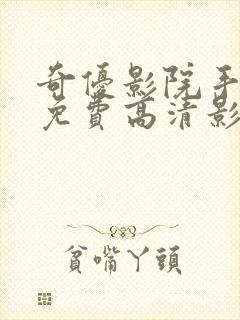 奇優影院手
免費高清影
貧嘴丫頭